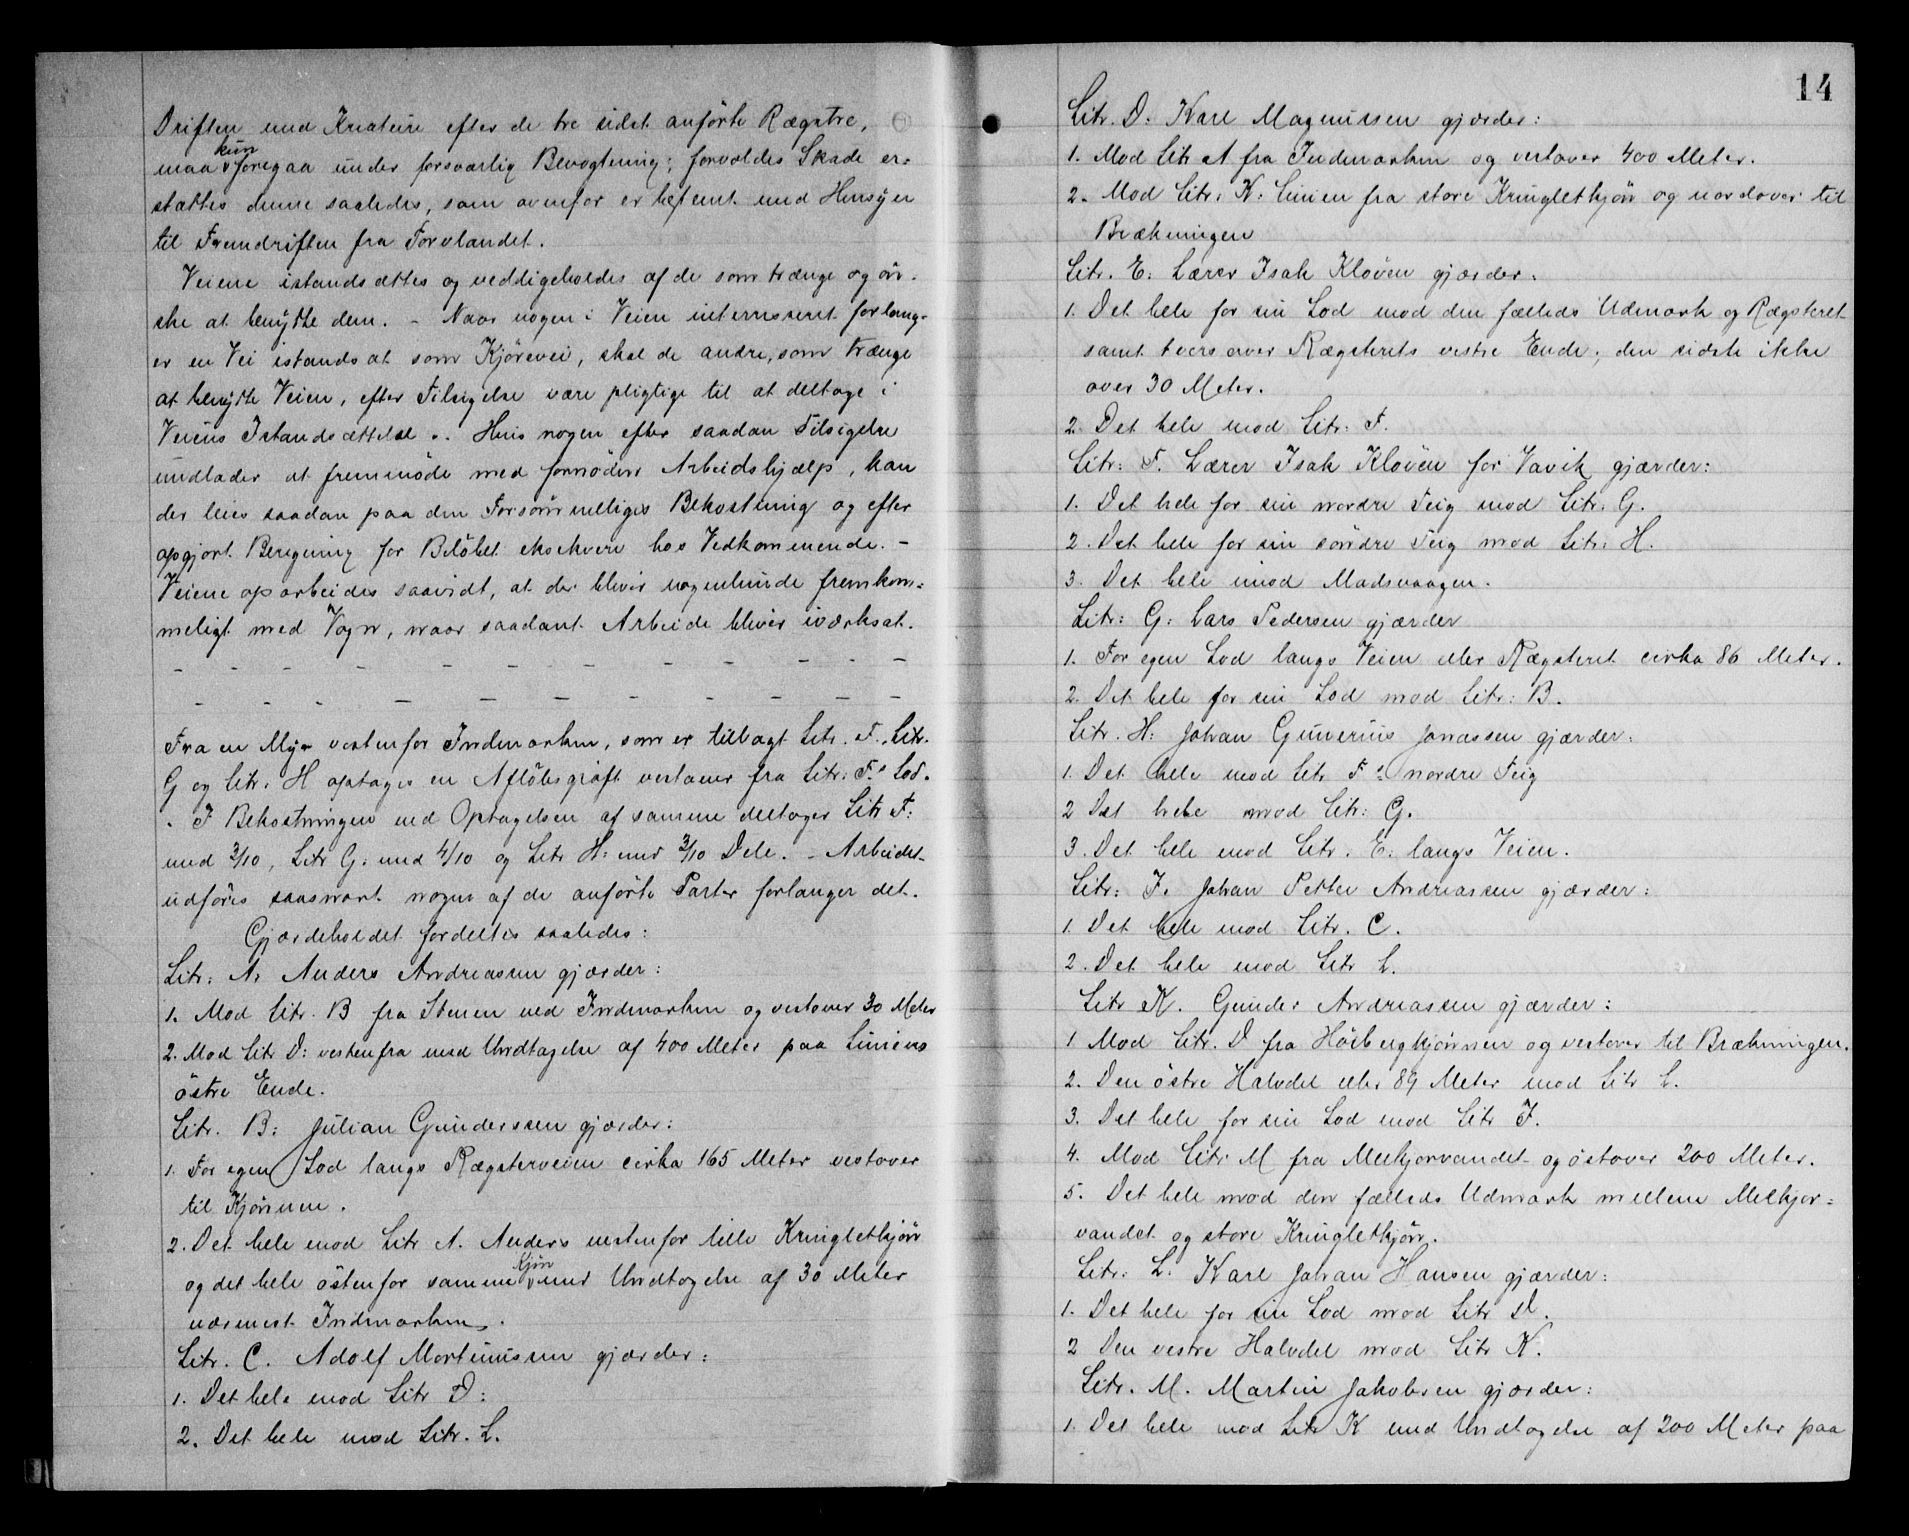 Driften med Kreature efter de tre sidst anførte Rægstre,
kun
maa foregaa under forsvarlig Bevogtning; forvoldes Skade er-
stattes denne saaledes, som ovenfor er bestemt med Hensÿn
til Fremdriften fra Forvlandet.
Veiene istandsættes og vedligeholdes af de som trænge og øn-
ske at benÿtte dem. – Naar nogen i Veien interesseret forlang-
er en Vei istandsat som Kjörevei, skal de andre, som trænge
at benÿtte Veien, efter Tilsigelse være pligtige til at deltage i
Veiens Istandsættelse. Hvis nogen efter saadan Tilsigelse
undlader at fremmøde med fornøden Arbeidshjælp, kan
der leies saadan paa den Forsømmeliges Bekostning og efter
opgjort Beregning for Beløbet eksekvere hos Vedkommende. –
Veiene oparbeides saavidt, at der bliver nogenlunde fremkom-
meligt med Vogn, naar saadant Arbeide bliver iværksat.
– – – – – – – – – – –
– – – – – – – – – – –
Fra en Mÿr vestenfor Indmarken, som er tillagt Litr. F., Litr.
G og Litr. H optages en Afløbsgrøft vestover fra Litr: F.s Lod.
. I Bekostningen ved Optagelsen af samme deltager Litr F:
med 3/10, Litr G: med 4/10 og Litr H: med 3/10 Dele. – Arbeidet
udføres saasnart nogen af de anførte Parter forlanger det.
Gjærdeholdet fordeltes saaledes:
Litr. A. Anders Andreassen gjærder:
1. Mod Litr. B fra Stenen ved Indmarken og vestover 30 Meter
2. Mod Litr D: vestenfra med Undtagelse af 400 Meter paa Liniens
østre Ende.
Litr. B: Julian Gunderssen gjærder:
1. For egen Lod langs Rægsterveien cirka 165 Meter vestover
til Kjønnen.
2. Det hele mod Litr A. Anders vestenfor lille Kringletkjøn
Kjøn
og det hele østenfor samme med Undtagelse af 30 Meter
nærmest Indmarken.
Litr. C. Adolf Mortinussen gjærder:
1. Det hele mod Litr I:
2. Det hele mod Litr. L.
14
Litr. D. Karl Magnussen gjærder:
1. Mod Litr A fra Indmarken og vestover 400 Meter.
2. Mod Litr: K: Linien fra store Kringletkjøn og nordover til
Brækningen
Litr. E: Lærer Isak Kløven gjærder:
1. Det hele for sin Lod mod den fælleds Udmark og Rægsteret
samt tvers over Rægsterets vestre Ende; den sidste ikke
over 30 Meter.
2. Det hele mod Litr: F.
Litr: F. Lærer Isak Kløven for Vavik gjærder:
1. Det hele for sin nordre Teig mod Litr: G.
2. Det hele for sin søndre Teig mod Litr: H.
3. Det hele imod Madsvaagen.
Litr: G: Lars Pedersen gjærder
1. For egen Lod langs Veien eller Rægsteret cirka 86 Meter.
2. Det hele for sin Lod mod Litr: B.
Litr. H: Johan Gunerius Jonassen gjærder:
1. Det hele mod Litr F: nordre Teig
2 Det hele mod Litr: G.
3. Det hele mod Litr. E: langs Veien.
Litr: I. Johan Petter Andreassen gjærder:
1. Det hele mod Litr. C.
2. Det hele mod Litr L.
Litr K. Gunder Andreassen gjærder:
1 Mod Litr. D fra Höibergkjønnen og vestover til Brækningen.
2. Den østre Halvdel eller 89 Meter mod Litr L.
3. Det hele for sin Lod mod Litr I.
4. Mod Litr M fra Melkjorvandet og østover 200 Meter.
5. Det hele mod den fælleds Udmark mellem Melkjor-
vandet og store Kringletkjøn.
Litr: L. Karl Johan Hansen gjærder:
1. Det hele for sin Lod mod Litr D.
2 Den vestre Halvdel mod Litr K.
Litr. M. Martin Jakobsen gjærder:
1. Det hele mod Litr K med Undtagelse af 200 Meter paa